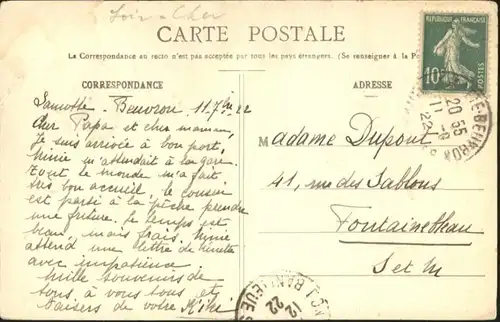 Loir-Cher
CARTE POSTALE
La Correspondance au recto n'est pas acceptée par tous les pays étrangers. (Se renseigner à la Po
CORRESPONDANCE
ADRESSE
REPUBLIQUE FRANÇAISE
10
POSTES
Lamotte-Beuvron 11 7bre 22
Cher Papa et chère maman,
Je suis arrivée à bon port,
m'attendait à la gare.
tout le monde m'a fait
très bon accueil. le cousin
est parti à la pêche prendre
une friture. le temps est
beau, mais frais.
attend une lettre de
avec impatience
mille souvenirs de
tous à vous tous et
baisers de votre Kiki
Madame Dupont
41, rue des Sablons
Fontainebleau
S et M
E-BEUVRON
20 55
11 -9
22
BANLIEUE
12
22